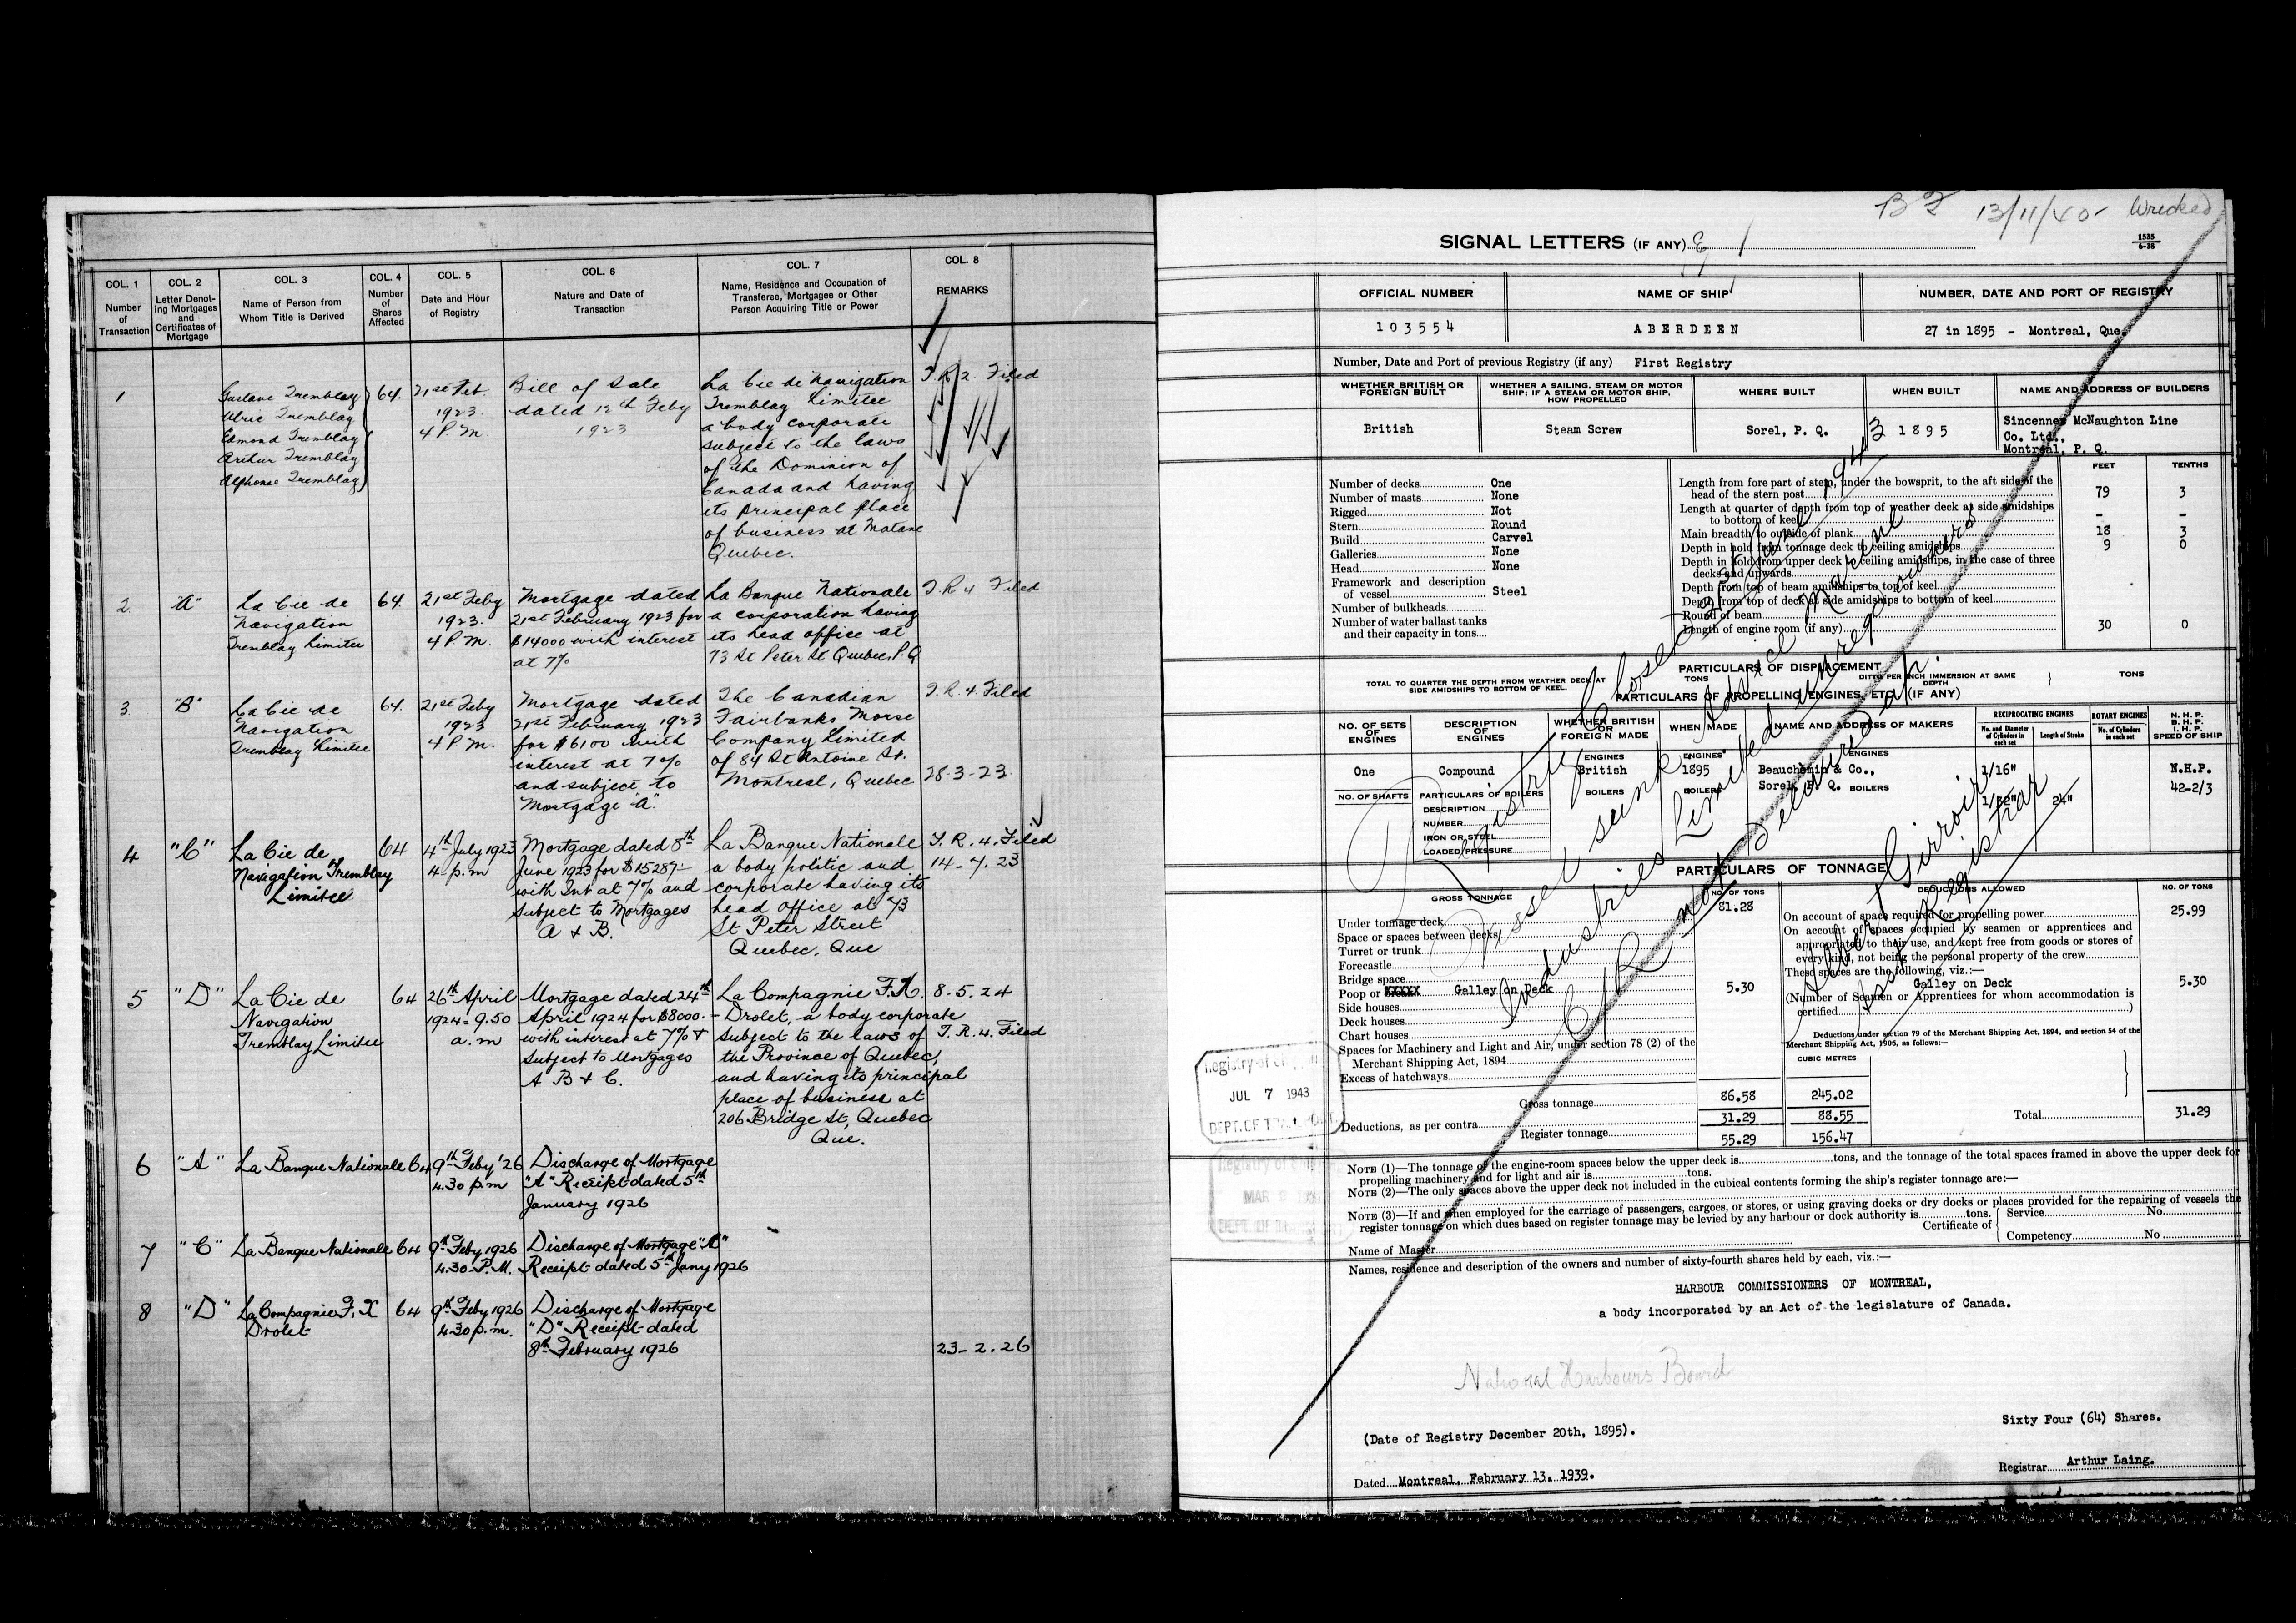 COL. 1
Number
of
Transaction
COL. 2
Letter Denot-
ing Mortgages
and
Certificates of
Mortgage
COL. 3
Name of Person from
Whom Title is Derived
COL. 4
Number
of
Shares
Affected
COL. 5
Date and Hour
of Registry
COL. 6
Nature and Date of
Transaction
COL. 7
Name, Residence and Occupation of
Transferee, Mortgagee or Other
Person Acquiring Title or Power
COL. 8
REMARKS
1
Gustave Tremblay
Ulric Tremblay
Edmond Tremblay
Arthur Tremblay
Alphonse Tremblay
64.
21st Feb.
1923.
4 P.M.
Bill of Sale
dated 12th Feby
1923
La Cie de Navigation
Tremblay Limitee
a body corporate
subject to the laws
of the Dominion of
Canada and having
its principal place
of business at Matane
Quebec.
T.R. 2. Filed
2.
"A"
La Cie de
Navigation
Tremblay Limitee
64.
21st Feby
1923.
4 P.M.
Mortgage dated
21st February 1923 for
$14000 with interest
at 7%
La Banque Nationale
a corporation having
its head office at
73 St Peter St Quebec, P.Q
T.R 4 Filed
3.
"B"
La Cie de
Navigation
Tremblay Limitee
64.
21st Feby
1923
4 P.M.
Mortgage dated
21st February 1923
for $6100 with
interest at 7%
and subject to
Mortgage "A".
The Canadian
Fairbanks Morse
Company Limited
of 84 St Antoine St.
Montreal, Quebec
T.R.4. Filed
28-3-23
4
"C"
La Cie de
Navigation Tremblay
Limitee
64
4th July 1923
4 p.m
Mortgage dated 8th
June 1923 for $15287:-
with Int at 7% and
Subject to Mortgages
A & B.
La Banque Nationale
a body politic and
corporate having its
head office at 73
St Peter Street
Quebec, Que
T.R.4. Filed
14-7.23
5
"D"
La Cie de
Navigation
Tremblay Limitee
64
26th April
1924 = 9.50
a.m
Mortgage dated 24th
April 1924 for $8000.-
with interest at 7% &
Subject to Mortgages
A B & C.
La Compagnie F.X.
Drolet, a body corporate
subject to the laws of
the Province of Quebec,
and having its principal
place of business at
206 Bridge St, Quebec
Que.
8-5.24
T.R.4. Filed
6
"A"
La Banque Nationale
64
9th Feby '26
4.30 p.m
Discharge of Mortgage
"A" Receipt dated 5th
January 1926
7
"C"
La Banque Nationale
64
9th Feby 1926
4.30 P.M.
Discharge of Mortgage "C"
Receipt dated 5th Jany 1926
8
"D"
La Compagnie F. X
Drolet
64
9th Feby 1926
4.30 p.m.
Discharge of Mortgage
"D" Receipt dated
8th February 1926
23-2.26
13/11/40- Wrecked
SIGNAL LETTERS (IF ANY)
1535
6-38
OFFICIAL NUMBER
NAME OF SHIP
NUMBER, DATE AND PORT OF REGISTRY
103554
ABERDEEN
27 in 1895 - Montreal, Que.
Number, Date and Port of previous Registry (if any) First Registry
WHETHER BRITISH OR
FOREIGN BUILT
WHETHER A SAILING, STEAM OR MOTOR
SHIP; IF A STEAM OR MOTOR SHIP,
HOW PROPELLED
WHERE BUILT
WHEN BUILT
NAME AND ADDRESS OF BUILDERS
British
Steam Screw
Sorel, P. Q.
1895
Sincennes McNaughton Line
Co. Ltd.,
Montreal, P. Q.
FEET
TENTHS
Number of decks One
Number of masts None
Rigged Not
Stern Round
Build Carvel
Galleries None
Head None
Framework and description
of vessel Steel
Number of bulkheads
Number of water ballast tanks
and their capacity in tons
Length from fore part of stem, under the bowsprit, to the aft side of the
head of the stern post 79 3
Length at quarter of depth from top of weather deck at side amidships
to bottom of keel - -
Main breadth to outside of plank 18 3
Depth in hold from tonnage deck to ceiling amidships 9 0
Depth in hold from upper deck to ceiling amidships, in the case of three
decks and upwards
Depth from top of beam amidships to top of keel
Depth from top of deck at side amidships to bottom of keel
Round of beam
Length of engine room (if any) 30 0
PARTICULARS OF DISPLACEMENT
TOTAL TO QUARTER THE DEPTH FROM WEATHER DECK AT
SIDE AMIDSHIPS TO BOTTOM OF KEEL.
TONS
DITTO PER INCH IMMERSION AT SAME
DEPTH
TONS
PARTICULARS OF PROPELLING ENGINES, ETC. (IF ANY)
NO. OF SETS
OF
ENGINES
DESCRIPTION
OF
ENGINES
WHETHER BRITISH
OR
FOREIGN MADE
WHEN MADE
NAME AND ADDRESS OF MAKERS
RECIPROCATING ENGINES
No. and Diameter
of Cylinders in
each set
Length of Stroke
ROTARY ENGINES
No. of Cylinders
in each set
N. H. P.
B. H. P.
I. H. P.
SPEED OF SHIP
One
Compound
ENGINES
British
ENGINES
1895
ENGINES
Beauchemin & Co.,
Sorel, P. Q.
1/16"
1/32"
24"
N.H.P.
42-2/3
NO. OF SHAFTS
PARTICULARS OF BOILERS
DESCRIPTION
NUMBER
IRON OR STEEL
LOADED PRESSURE
BOILERS
BOILERS
BOILERS
PARTICULARS OF TONNAGE
GROSS TONNAGE
NO. OF TONS
DEDUCTIONS ALLOWED
NO. OF TONS
Under tonnage deck 81.28
Space or spaces between decks
Turret or trunk
Forecastle
Bridge space
Poop or XXXXX Galley on Deck 5.30
Side houses
Deck houses
Chart houses
Spaces for Machinery and Light and Air, under section 78 (2) of the
Merchant Shipping Act, 1894
Excess of hatchways
Gross tonnage 86.58 245.02
Deductions, as per contra 31.29 88.55
Register tonnage 55.29 156.47
On account of space required for propelling power 25.99
On account of spaces occupied by seamen or apprentices and
appropriated to their use, and kept free from goods or stores of
every kind, not being the personal property of the crew
These spaces are the following, viz.:—
Galley on Deck 5.30
(Number of Seamen or Apprentices for whom accommodation is
certified )
Deductions under section 79 of the Merchant Shipping Act, 1894, and section 54 of the
Merchant Shipping Act, 1906, as follows:—
CUBIC METRES
Total 31.29
Registry closed
1943
Vessel sunk
Advice Marine
Industries Limited
Albert Giroir
Asst Registrar
Registry of
JUL 7 1943
DEPT. OF
NOTE (1)—The tonnage of the engine-room spaces below the upper deck is tons, and the tonnage of the total spaces framed in above the upper deck for
propelling machinery and for light and air is tons.
NOTE (2)—The only spaces above the upper deck not included in the cubical contents forming the ship's register tonnage are:—
NOTE (3)—If and when employed for the carriage of passengers, cargoes, or stores, or using graving docks or dry docks or places provided for the repairing of vessels the
register tonnage on which dues based on register tonnage may be levied by any harbour or dock authority is tons.
Certificate of
Service No.
Competency No
Name of Master
Names, residence and description of the owners and number of sixty-fourth shares held by each, viz.:—
HARBOUR COMMISSIONERS OF MONTREAL,
a body incorporated by an Act of the legislature of Canada.
National Harbours Board
Sixty Four (64) Shares.
(Date of Registry December 20th, 1895).
Dated Montreal, February 13, 1939.
Registrar Arthur Laing.